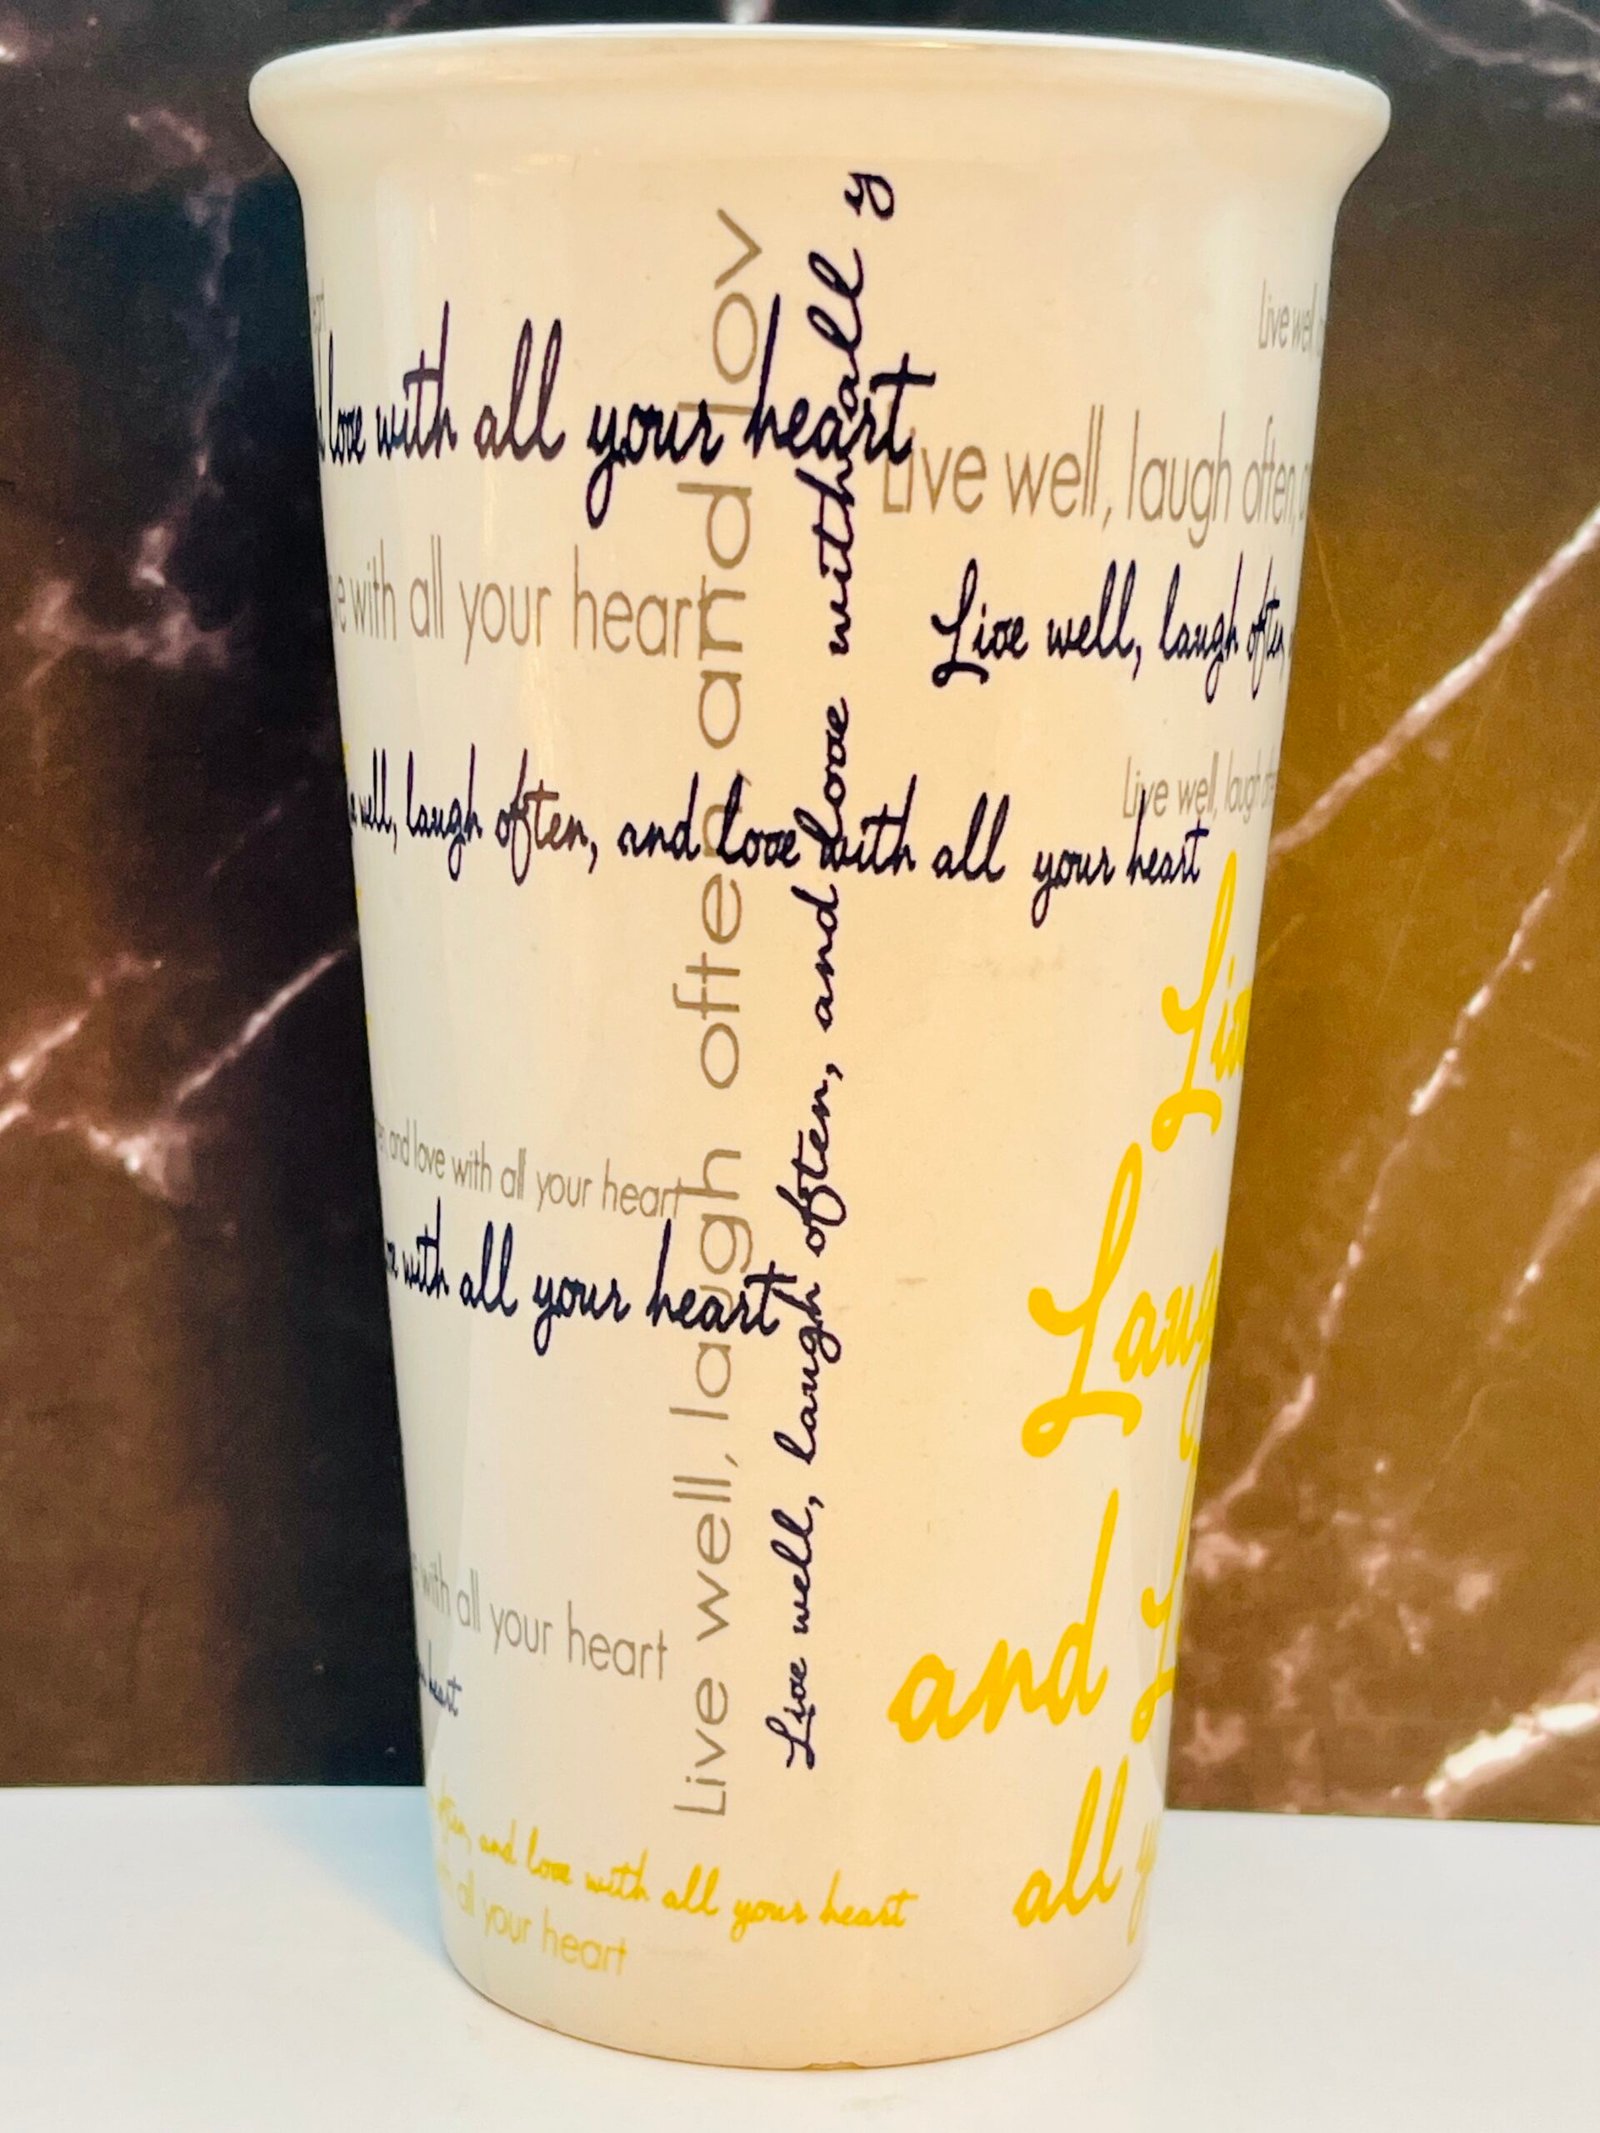 love with all your heart
Live well
Live well, laugh often,
with all your heart
Live well, laugh often,
well, laugh often, and love with all your heart
Live well, laugh
Live well, laugh often, and lov
Live well, laugh often, and love with all y
and love with all your heart
with all your heart
with all your heart
heart
Laug
and L
all y
often, and love with all your heart
all your heart